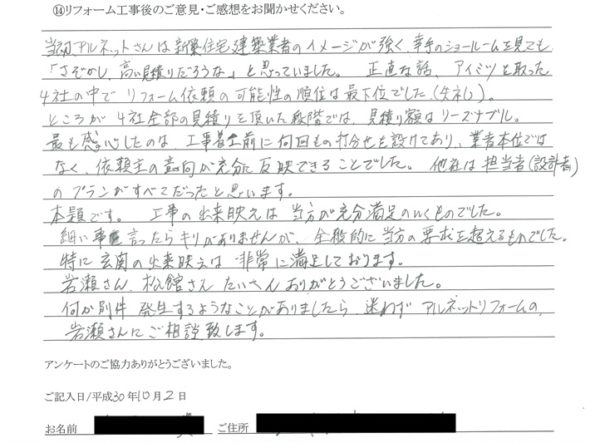 ⑭リフォーム工事後のご意見・ご感想をお聞かせください。
当初アルネットさんは新築住宅建築業者のイメージが強く、幸手のショールームを見ても
「さぞかし、高い見積りだろうな」と思っていました。 正直な話、アイミツを取った
4社の中でリフォーム依頼の可能性の順位は最下位でした(失礼)。
ところが4社全部の見積りを頂いた段階では、見積り額はリーズナブル。
最も感心したのは、工事着工前に何回もの打合せを設けてあり、業者本位では
なく、依頼主の意向が充分に反映できることでした。 他社は担当者(設計者)
のプランがすべてだったと思います。
本題です。 工事の出来映えは当方が充分満足のいくものでした。
細い事を言ったらキリがありませんが、全般的に当方の要求を超えるものでした。
特に玄関の出来映えは非常に満足しております。
岩瀬さん、松館さん たいへんありがとうございました。
何か別件発生するようなことがありましたら、迷わずアルネットリフォームの、
岩瀬さんにご相談致します。
アンケートのご協力ありがとうございました。
ご記入日/平成30年10月2日
お名前 ご住所